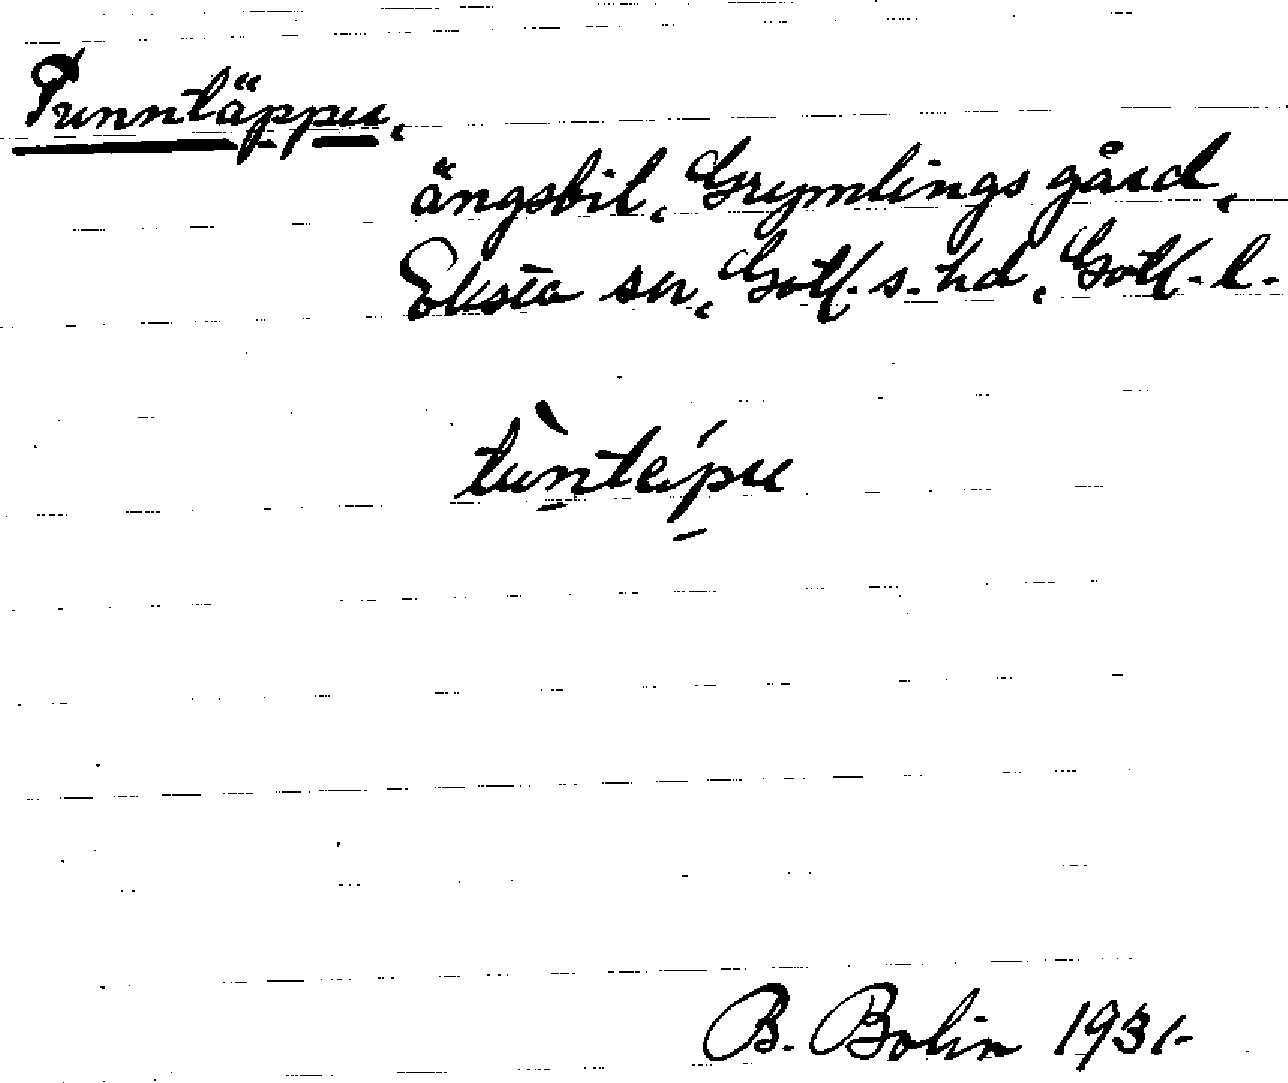 Tunntäppu,
ängsbit, Grymlings gård,
Eksta sn, Gotl. s. hd, Gotl. l.
tùntépu
B. Bolin 1931.